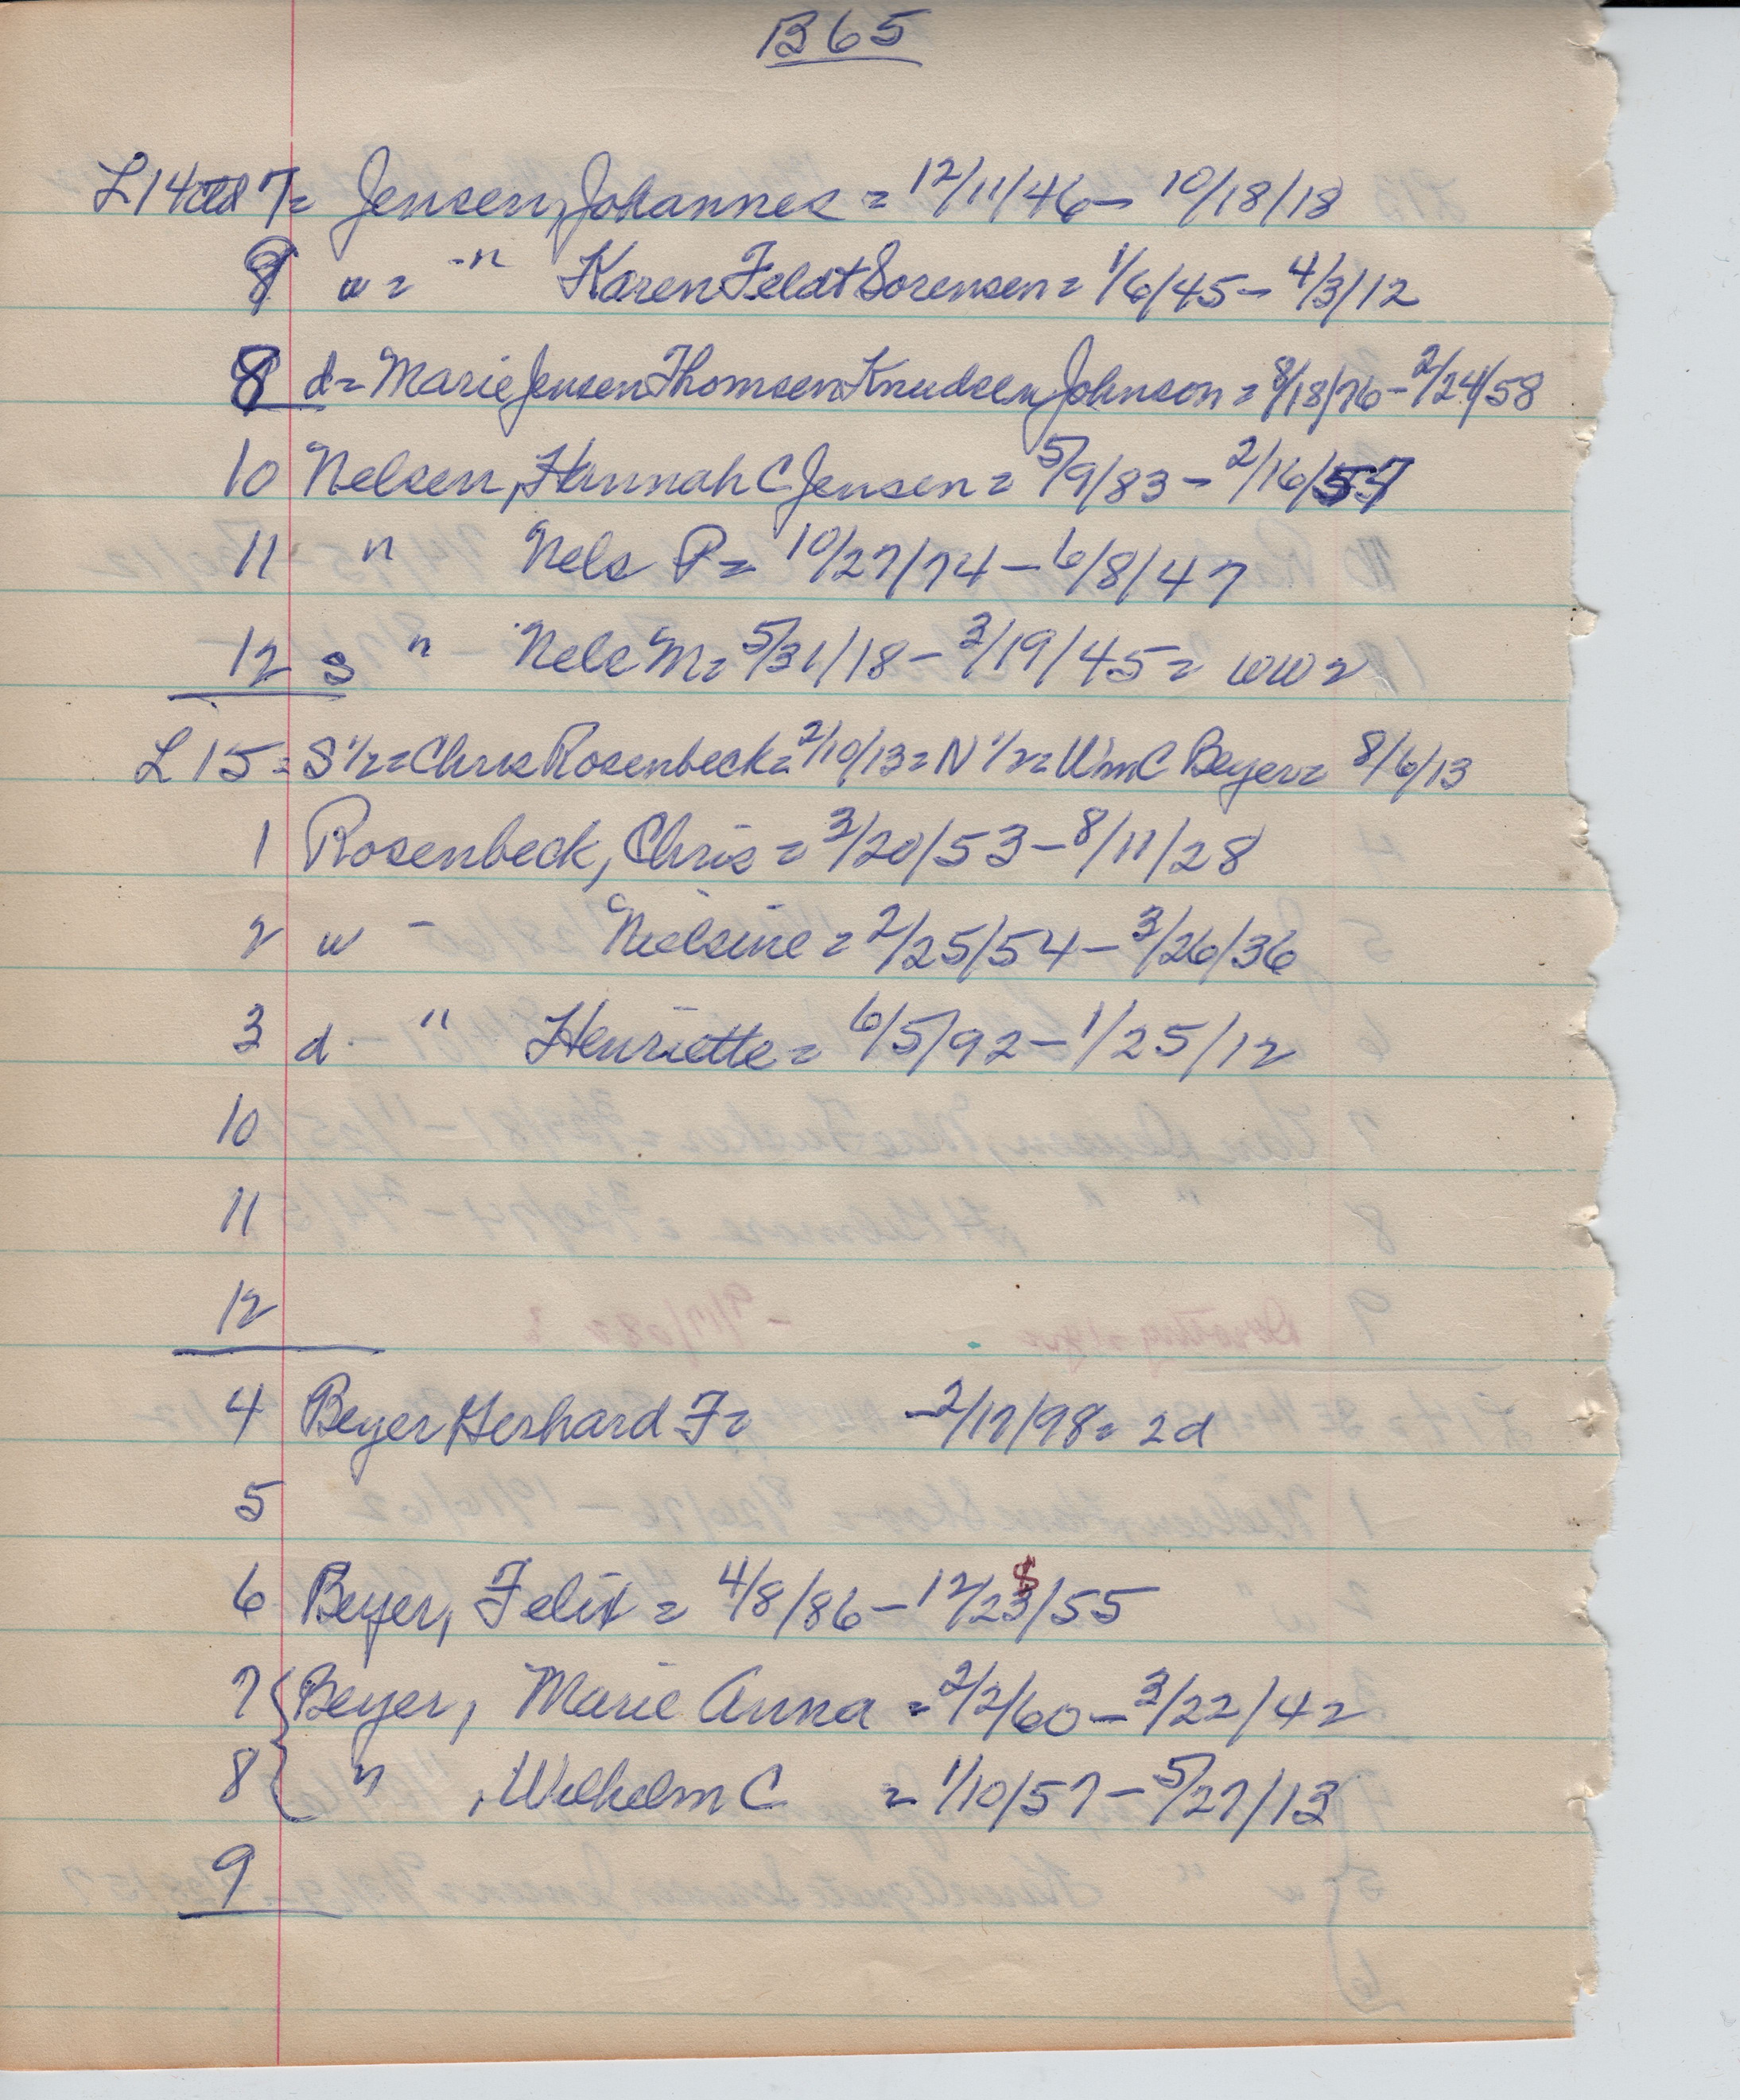 B65
L14ctd 7= Jensen, Johannes = 12/11/46 - 10/18/18
9 w = -" Karen Feldt Sorensen = 1/6/45 - 4/3/12
8 d= Marie Jensen Thomsen Knudsen Johnson = 8/18/76 - 2/24/58
10 Nelsen, Hannah C Jensen = 5/9/83 - 2/16/57
11 " Nels P = 10/27/74 - 6/8/47
12 s " Nels M = 5/31/18 - 3/19/45 = WW2
L15 = S 1/2 = Chris Rosenbeck = 2/10/13 = N 1/2 = Wm C Beyer = 8/6/13
1 Rosenbeck, Chris = 3/20/53 - 8/11/28
2 w - Nielsine = 2/25/54 - 3/26/36
3 d - " Henriette = 6/5/92 - 1/25/12
10
11
12
4 Beyer, Gerhard F = - 2/17/98 = 2d
5
6 Beyer, Felix = 4/8/86 - 12/23/55
7 { Beyer, Marie Anna = 2/2/60 - 3/22/42
8 { " , Wilhelm C = 1/10/57 - 5/27/13
9